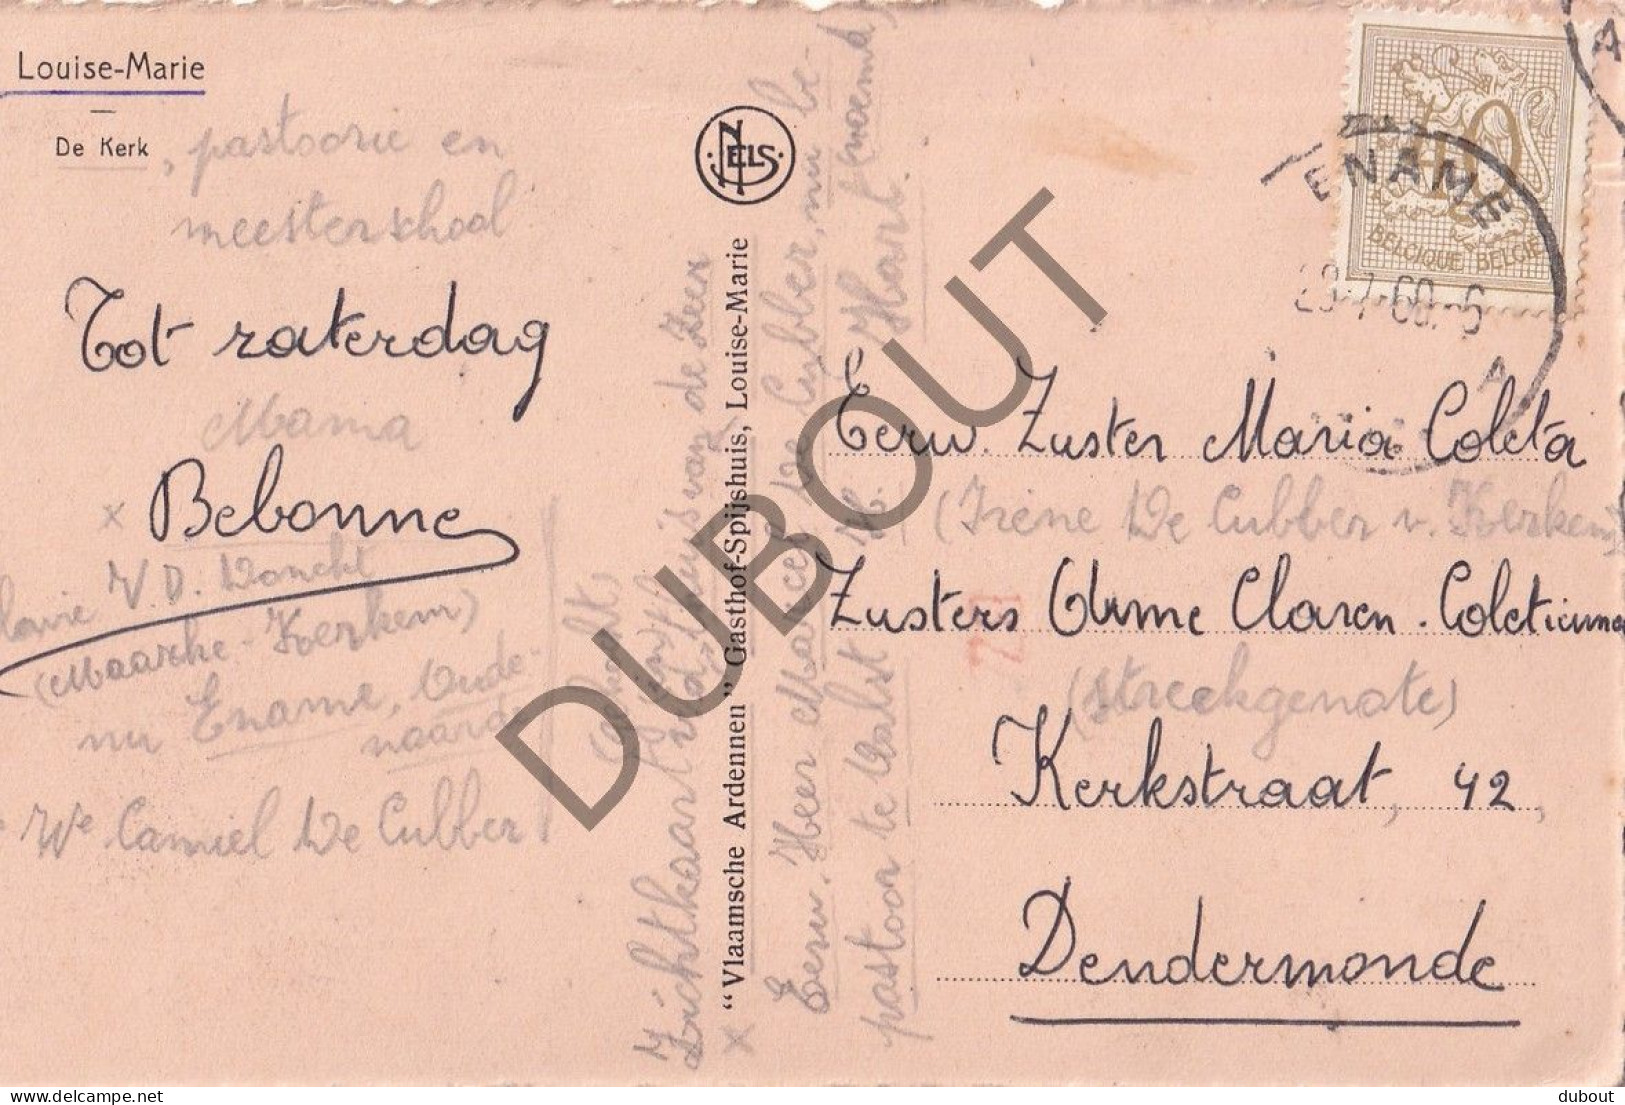 Louise-Marie
De Kerk
, pastoorie en
meesterschool
Tot zaterdag
Mama
x Bebonne
V. D. Donckt
(Maarke-Kerkem)
nu Ename, Oude-
naarde
We Camiel De Cubber
NELS
"Vlaamsche Ardennen" Gasthof-Spijshuis, Louise-Marie
Zichtkaart
van de Zeer
x Eerw. Heer Marcel De Cubber, nu be-
pastoor te Aalst
BELGIQUE BELGIË
40
ENAME
A
A
Eerw. Zuster Maria Coleta
(Irène De Cubber v. Kerkem)
Zusters Arme Claren-Coletienen
(streekgenote)
Kerkstraat, 42,
Dendermonde
DUBOUT
delcampe.net
dubout